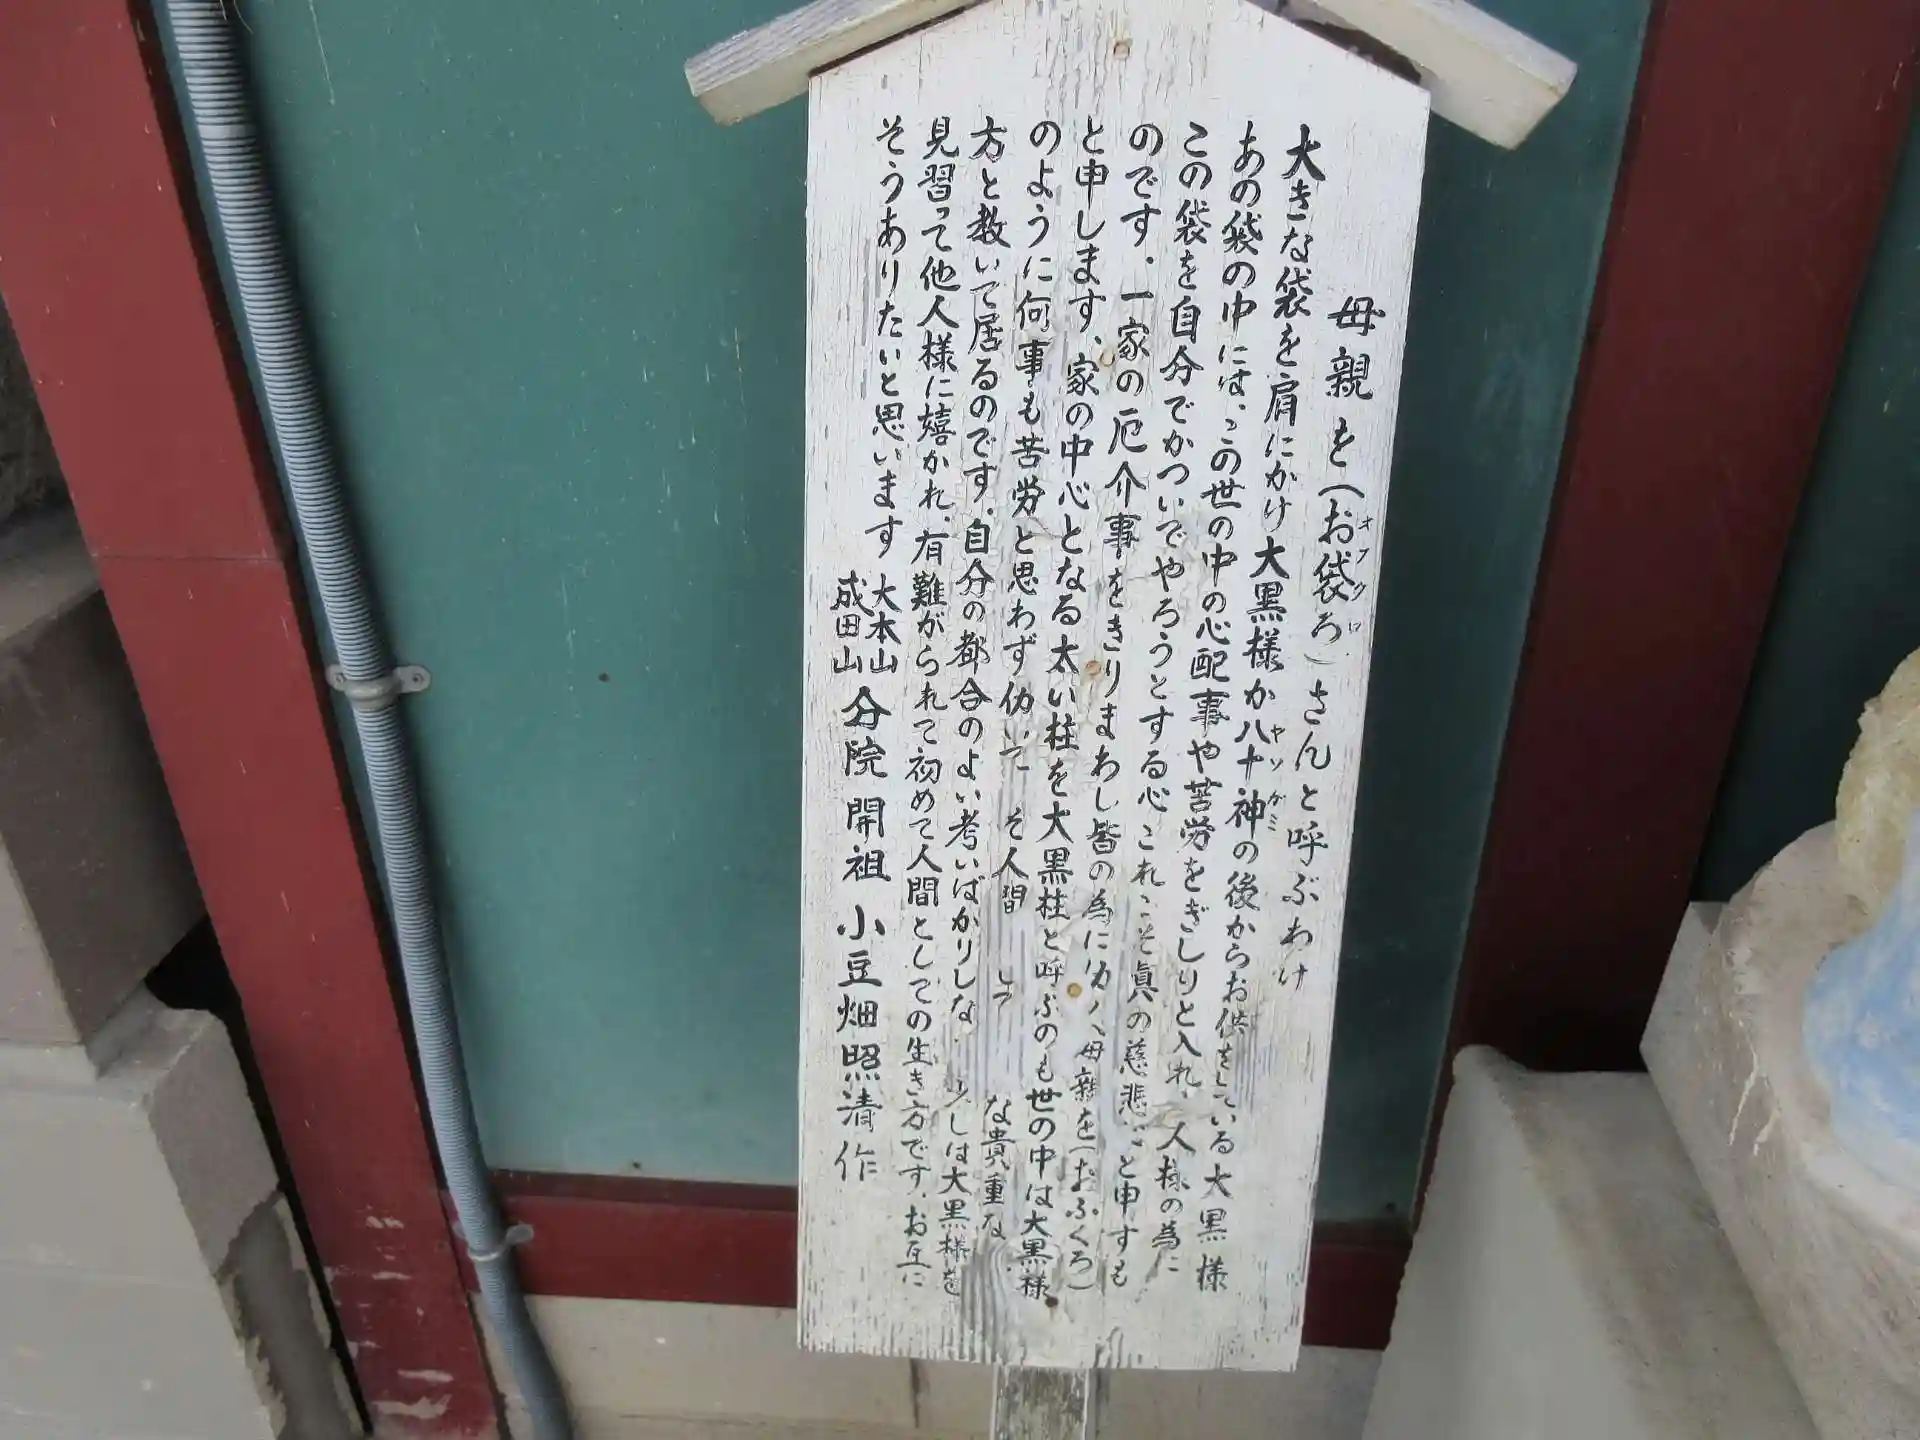 母親を(お袋ろ)さんと呼ぶわけ
オフクロ
大きな袋を肩にかけ大黒様が八十神の後からお供をしている大黒様
ヤソガミ
あの袋の中には、この世の中の心配事や苦労をぎしりと入れ、人様の為に
この袋を自分でかついでやろうとする心 これこそ眞の慈悲 と申すも
のです、一家の厄介事をきりまわし皆の為に 母親を(おふくろ)
と申します、家の中心となる太い柱を大黒柱と呼ぶのも世の中は大黒様
のように何事も苦労と思わず仂いて そ人間 して な貴重な
方と教いて居るのです、自分の都合のよい考いばかりしな 少しは大黒様を
見習って他人様に嬉かれ、有難がられて初めて人間としての生き方です、お互に
そうありたいと思います
大本山
成田山
分院開祖 小豆畑照清作